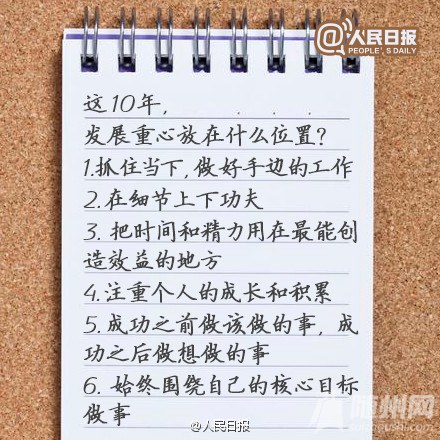 @人民日报
PEOPLE'S DAILY
这10年, . . .
发展重心放在什么位置?
1.抓住当下,做好手边的工作
2.在细节上下功夫
3. 把时间和精力用在最能创
造效益的地方
4.注重个人的成长和积累
5.成功之前做该做的事, 成
功之后做想做的事
6. 始终围绕自己的核心目标
做事
@人民日报
随州网